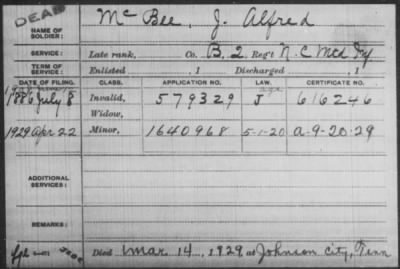 DEAD
NAME OF SOLDIER: Mc Bee, J. Alfred
SERVICE: Late rank, Co. B, 2 Reg't N.C. Mtd Inf
TERM OF SERVICE: Enlisted , 1 Discharged , 1
DATE OF FILING. CLASS. APPLICATION NO. LAW. CERTIFICATE NO.
1886 July 8 Invalid, 579329 J 616246
Widow,
1929 Apr 22 Minor, 1640968 5-1-20 A-9-20-29
ADDITIONAL SERVICES:
REMARKS:
Died Mar 14, 1929 at Johnson City, Tenn